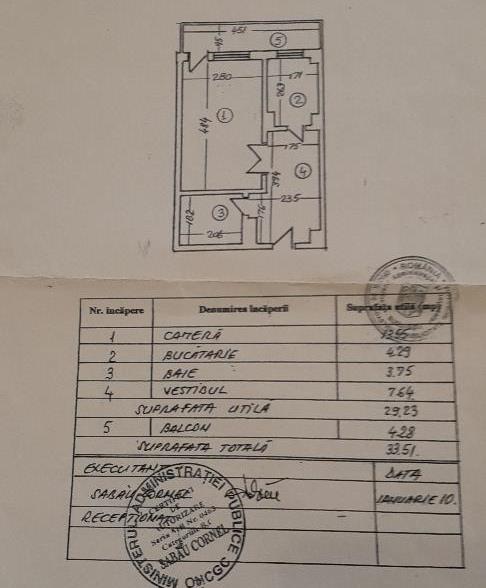 451
95
5
280
171
263
2
1
484
175
4
394
235
3
182
176
206
Nr. încăpere Denumirea încăperii Suprafața utilă (mp)
1 CAMERĂ 13.55
2 BUCĂTARIE 4.29
3 BAIE 3.75
4 VESTIBUL 7.64
SUPRAFAȚA UTILĂ 29.23
5 BALCON 4.28
SUPRAFAȚA TOTALĂ 33.51.
EXECUTANT DATA
SABĂU CORNEL IANUARIE 10.
RECEPȚIONAT -
ROMÂNIA
MINISTERUL ADMINISTRAȚIEI PUBLICE
OMCGC
CERTIFICAT
DE
AUTORIZARE
Seria
Categoria
SABĂU CORNEL